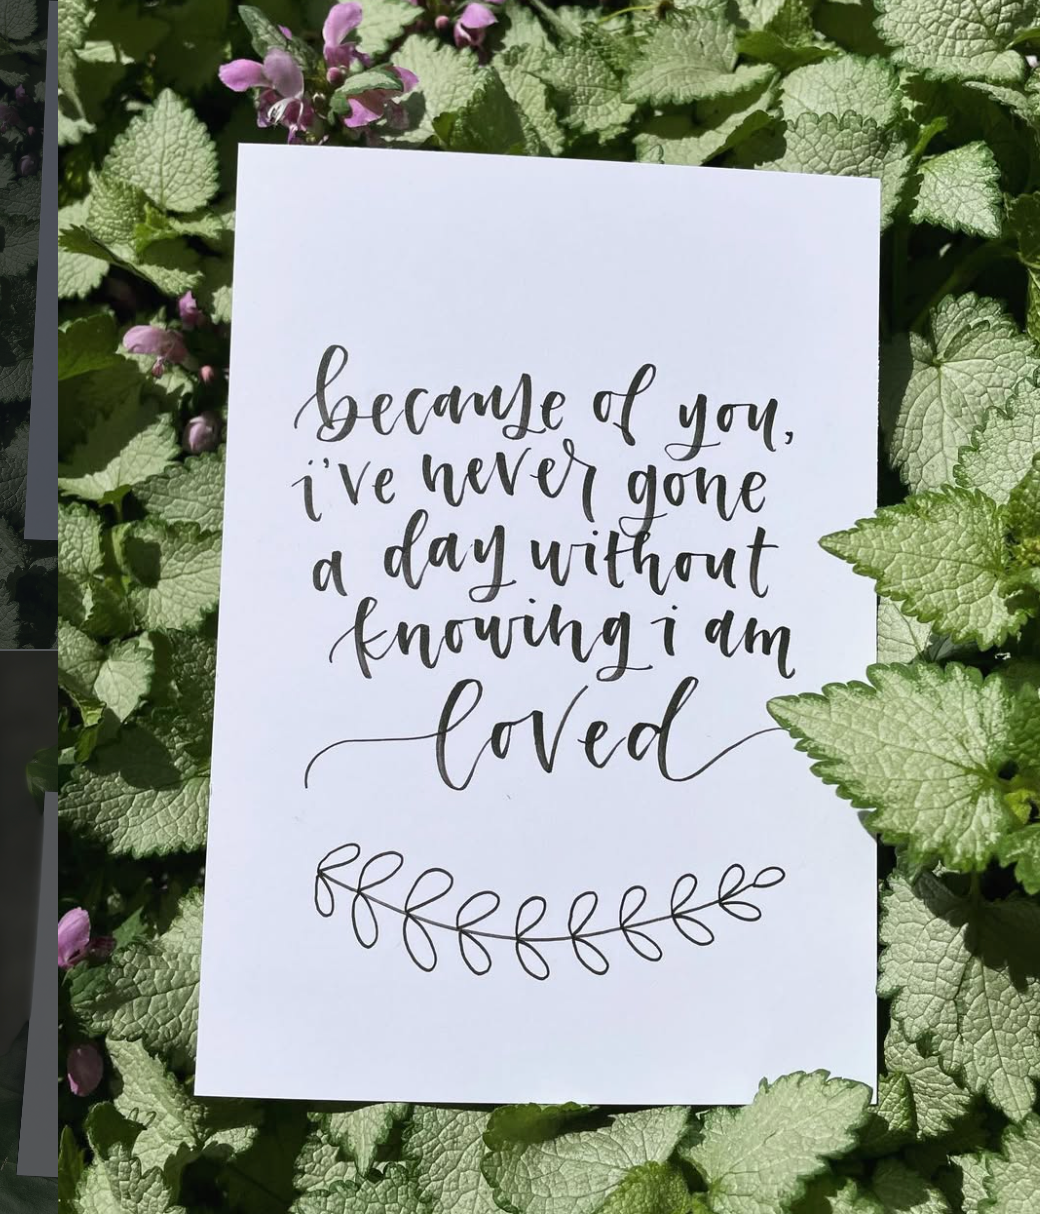 because of you,
i've never gone
a day without
knowing i am
loved